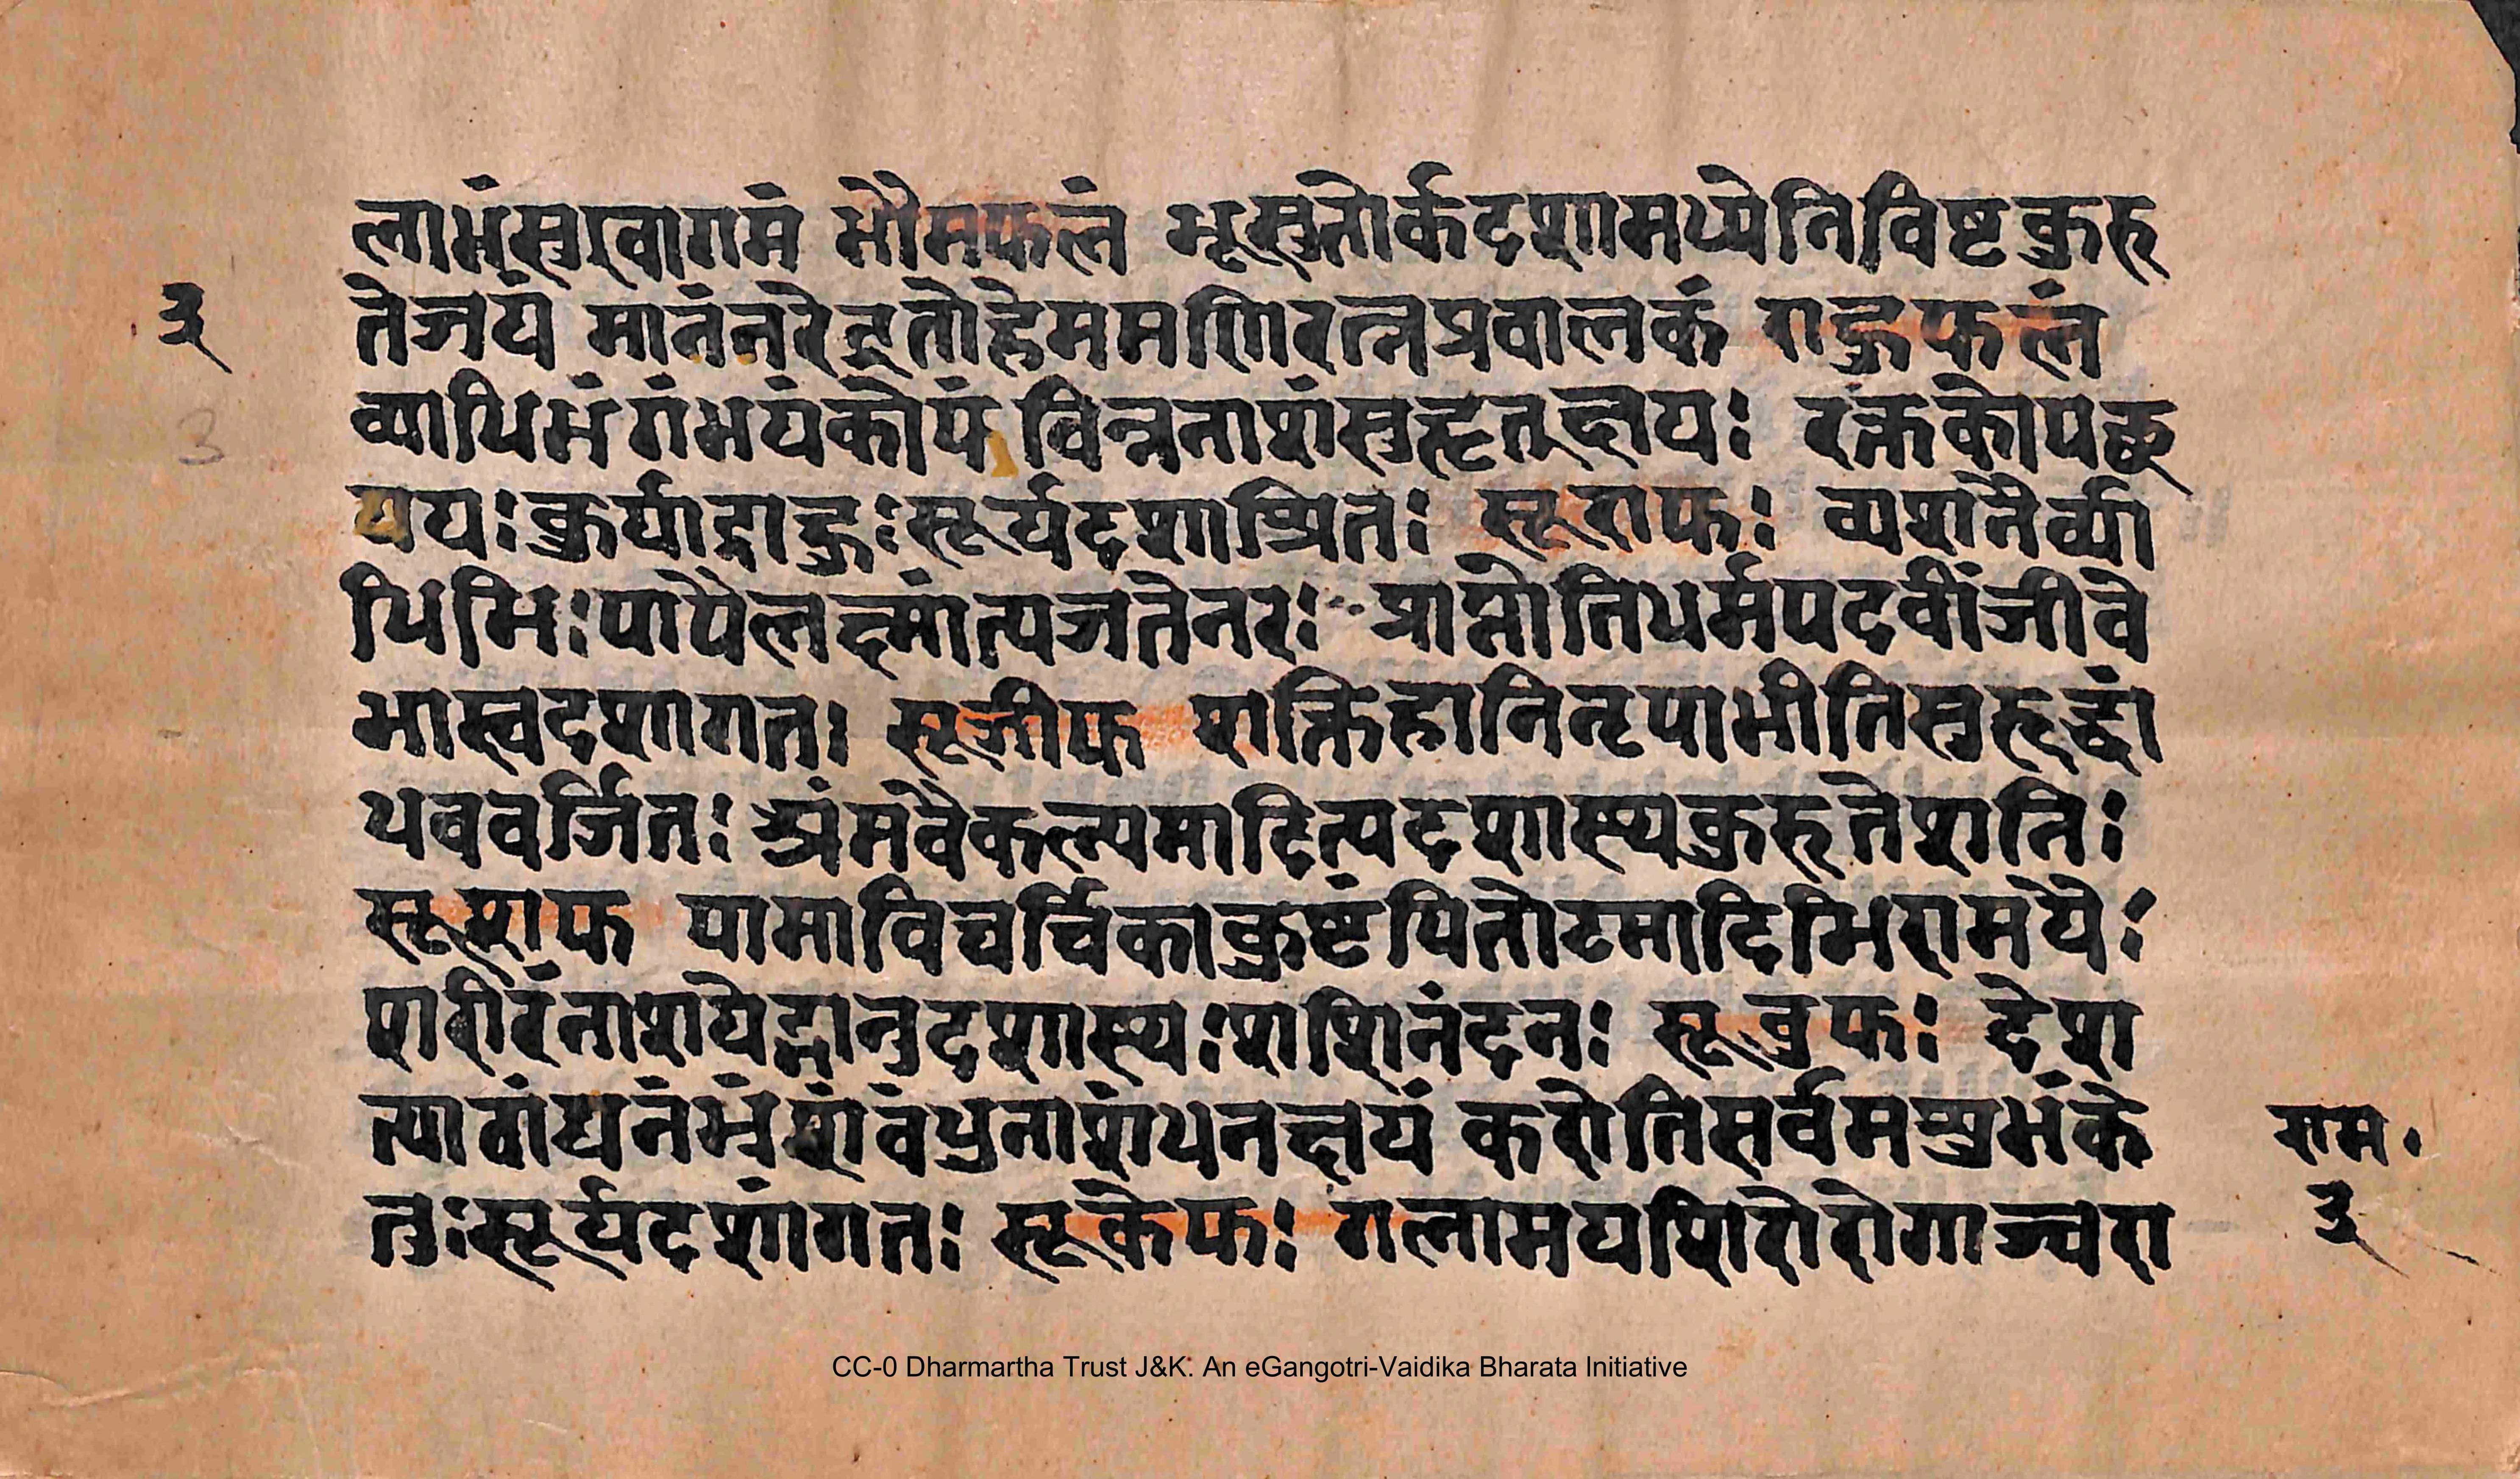 लाभंसुखागमं भौमफलं भूसुतोर्कदशामध्येतिविष्टकुरु
३
तेजयं मानंनरेन्द्रतोहेममणिरत्नप्रवालकं राहुफलं
3
व्याधिभंगंभयंकोपं वित्तनाशंसुहृत्क्षयः रक्तकोपकृ
ययः कुर्याद्राहुःसूर्यदशाश्रितः सूराफः व्यशनैर्व्या
धिभिःपापैलक्ष्मांत्यजतेनरः प्राप्नोतिधर्मपदवींजीवे
भास्वदशागत। सूजीफ शक्तिहानिनृपाभीतिसुहृद्वं
धववर्जितः अंमवैकल्यमादित्यदशास्यकुरुतेशतिः
सूशफ पामाविचर्चिकाकुष्टंपितोटमादिभिरामयेः
शरीरंनाशयेद्भानुदशास्यःशशिनंदनः सूबुफः देश
त्यावांद्यनंभ्रंशंवंधुनाशंधनक्षयं करोतिसर्वमसुभंके
राम।
तुःसूर्यदशांगतः सूकेफः गलामयशिरोरोगाज्वरा
३
CC-0 Dharmartha Trust J&K. An eGangotri-Vaidika Bharata Initiative